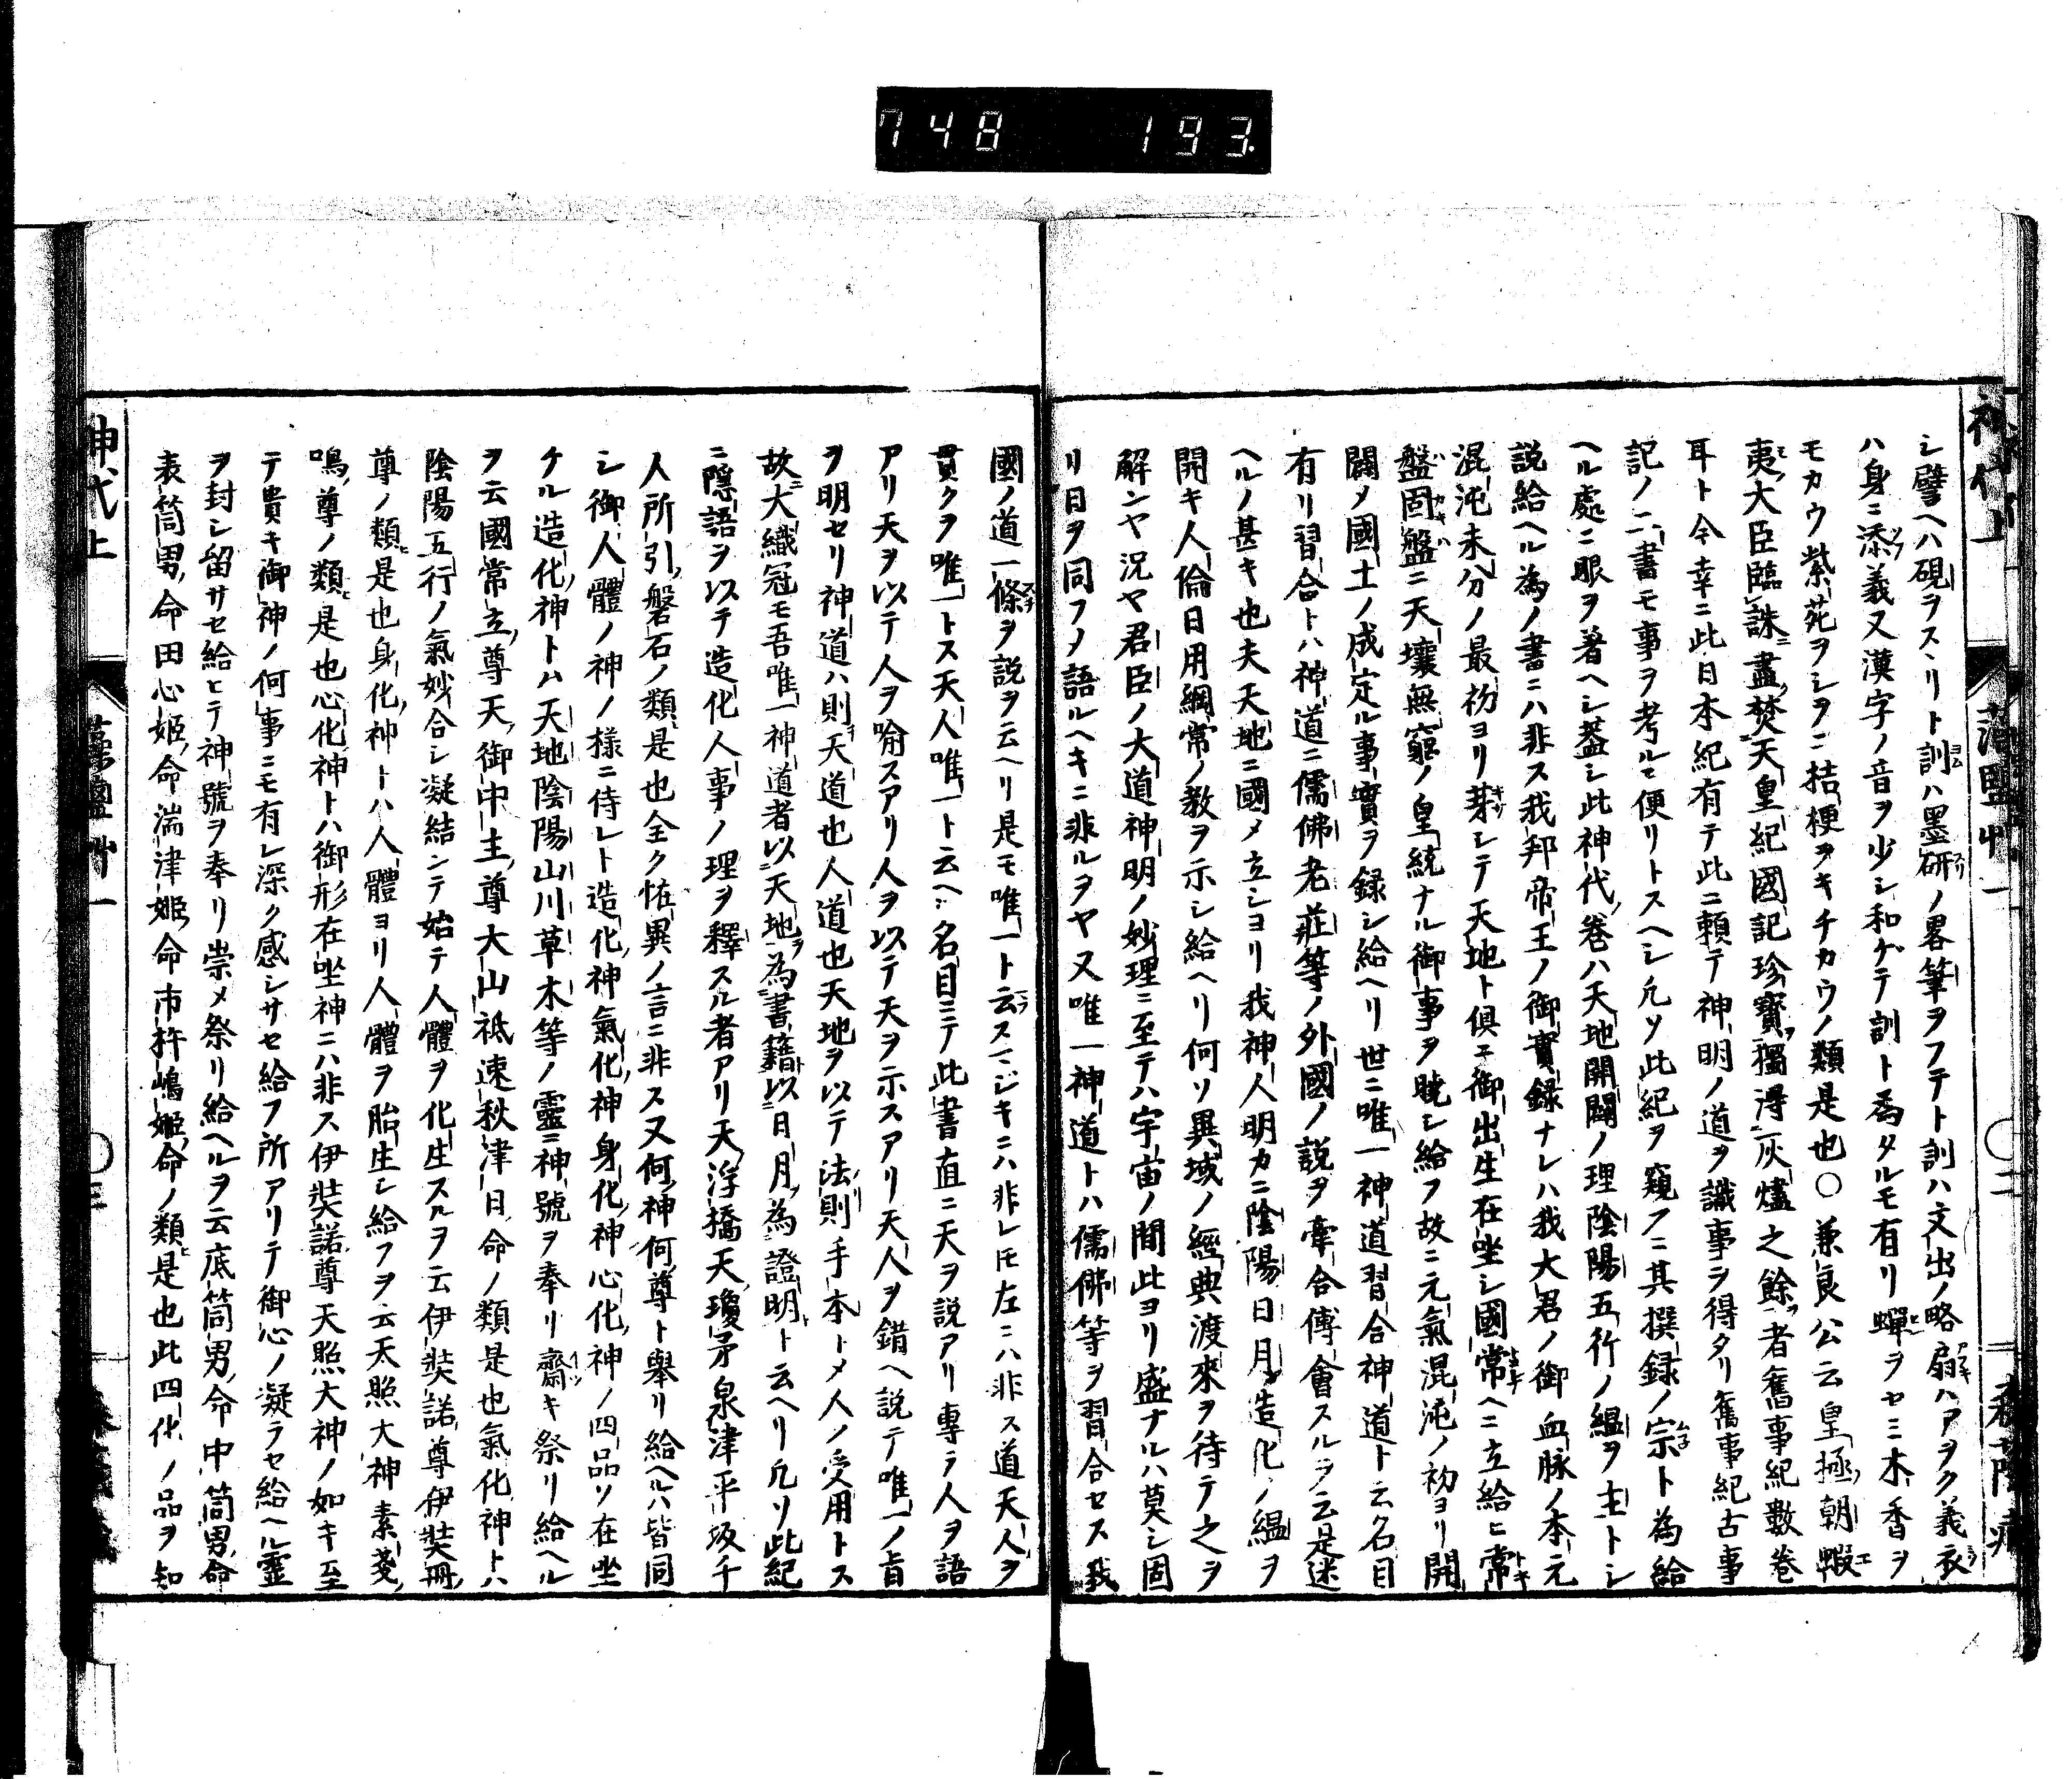 748 193
神代上
藻鹽艸一
〇二
シ譬ヘハ硯ヲスヽリト訓ハ墨研ノ畧筆ヲフテト訓ハ文出ノ略扇ハアヲク義衣
ハ身ニ添義又漢字ノ音ヲ少シ和ゲテ訓ト為タルモ有リ蟬ヲセミ木香ヲ
モカウ紫苑ヲシヲニ桔梗ヲキチカウノ類是也〇兼良公云皇極朝蝦
夷大臣臨誅盡焚天皇紀國記珍寳獨得灰燼之餘者舊事紀數卷
耳ト今幸ニ此日本紀有テ此ニ頼テ神明ノ道ヲ識事ヲ得タリ舊事紀古事
記ノ二書モ事ヲ考ルニ便リトスヘシ凢ソ此紀ヲ窺フニ其撰録ノ宗ト為給
ヘル處ニ眼ヲ著ヘシ葢シ此神代卷ハ天地開闢ノ理陰陽五行ノ緼ヲ主トシ
説給ヘル為ノ書ニハ非ス我邦帝王ノ御實録ナレハ我大君ノ御血脉ノ本元
混沌未分ノ最初ヨリ芽シテ天地ト倶ニ御出生在坐シ國常ヘニ立給ヒ常
盤固盤ニ天壤無窮ノ皇統ナル御事ヲ曉シ給フ故ニ元氣混沌ノ初ヨリ開
闢メ國土ノ成定ル事實ヲ録シ給ヘリ世ニ唯一神道習合神道ト云名目
有リ習合トハ神道ニ儒佛老莊等ノ外國ノ説ヲ牽合傅會スルヲ云是迷
ヘルノ甚キ也夫天地ニ國メ立シヨリ我神人明カニ陰陽日月造化ノ緼ヲ
開キ人倫日用綱常ノ教ヲ示シ給ヘリ何ソ異域ノ經典渡來ヲ待テ之ヲ
解ンヤ況ヤ君臣ノ大道神明ノ妙理ニ至テハ宇宙ノ間此ヨリ盛ナルハ莫シ固
リ日ヲ同フメ語ルヘキニ非ルヲヤ又唯一神道トハ儒佛等ヲ習合セス我
國ノ道一條ヲ説ヲ云ヘリ是モ唯一ト云スマジキニハ非レ𪜈左ニハ非ス道天人ヲ
貫クヲ唯一トス天人唯一ト云ヘル名目ニテ此書直ニ天ヲ説アリ專ラ人ヲ語
アリ天ヲ以テ人ヲ喩スアリ人ヲ以テ天ヲ示スアリ天人ヲ錯ヘ説テ唯一ノ旨
ヲ明セリ神道ハ則天道也人道也天地ヲ以テ法則手本トメ人ノ受用トス
故大織冠モ吾唯一神道者以天地為書籍以日月為證明ト云ヘリ凢ソ此紀
ニ隱語ヲ以テ造化人事ノ理ヲ釋スル者アリ天浮橋天瓊矛泉津平坂千
人所引磐石ノ類是也全ク恠異ノ言ニ非ス又何神何尊ト舉リ給ヘルハ皆同
シ御人體ノ神ノ樣ニ待レト造化神氣化神身化神心化神ノ四品ソ在坐
ケル造化神トハ天地陰陽山川草木等ノ靈ニ神號ヲ奉リ齋キ祭リ給ヘル
ヲ云國常立尊天御中主尊大山祇速秋津日命ノ類是也氣化神トハ
陰陽五行ノ氣妙合シ凝結ンテ始テ人體ヲ化生スルヲ云伊弉諾尊伊弉冊
尊ノ類是也身化神トハ人體ヨリ人體ヲ胎生シ給フヲ云天照大神素戔
嗚尊ノ類是也心化神トハ御形在坐神ニハ非ス伊弉諾尊天照大神ノ如キ至
テ貴キ御神ノ何事ニモ有レ深ク感シサセ給フ所アリテ御心ノ凝ラセ給ヘル靈
ヲ封シ留サセ給ヒテ神號ヲ奉リ崇メ祭リ給ヘルヲ云底筒男命中筒男命
表筒男命田心姬命湍津姬命市杵嶋姬命ノ類是也此四化ノ品ヲ知
神代上
藻鹽艸一
〇三